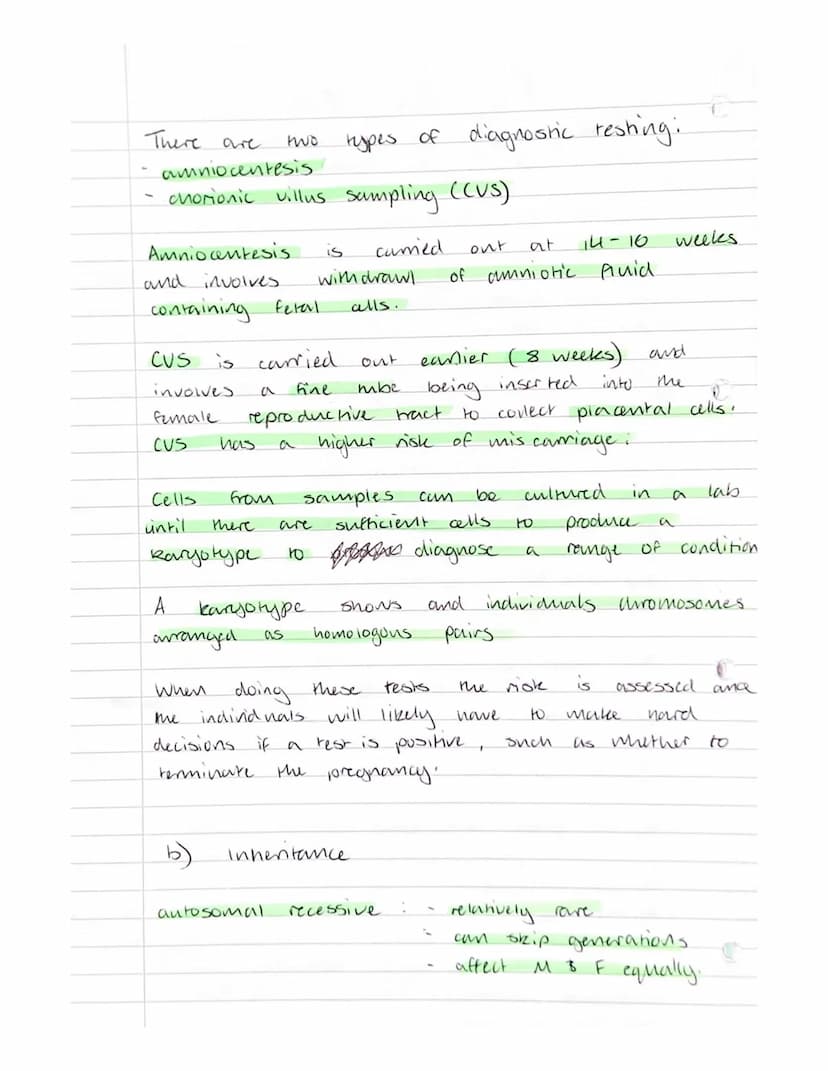 There are two types of diagnostic testing:
- amniocentesis
- chorionic villus sampling (CVS)
Amniocentesis is carried out at 14-16 weeks
and involves withdrawl of amniotic fluid
containing fetal cells.
CVS is carried out earlier (8 weeks) and
involves a fine tube being inserted into the
female reproductive tract to collect placental cells.
CVS has a higher risk of miscarriage.
Cells from samples can be cultured in a lab
until there are sufficient cells to produce a
karyotype to diagnose a range of condition
A karyotype shows and individuals chromosomes
arranged as homologous pairs
When doing these tests the risk is assessed and
the individuals will likely have to make hard
decisions if a test is positive, such as whether to
terminate the pregnancy.
b) Inheritance
autosomal recessive : - relatively rare
- can skip generations
- affect M & F equally.